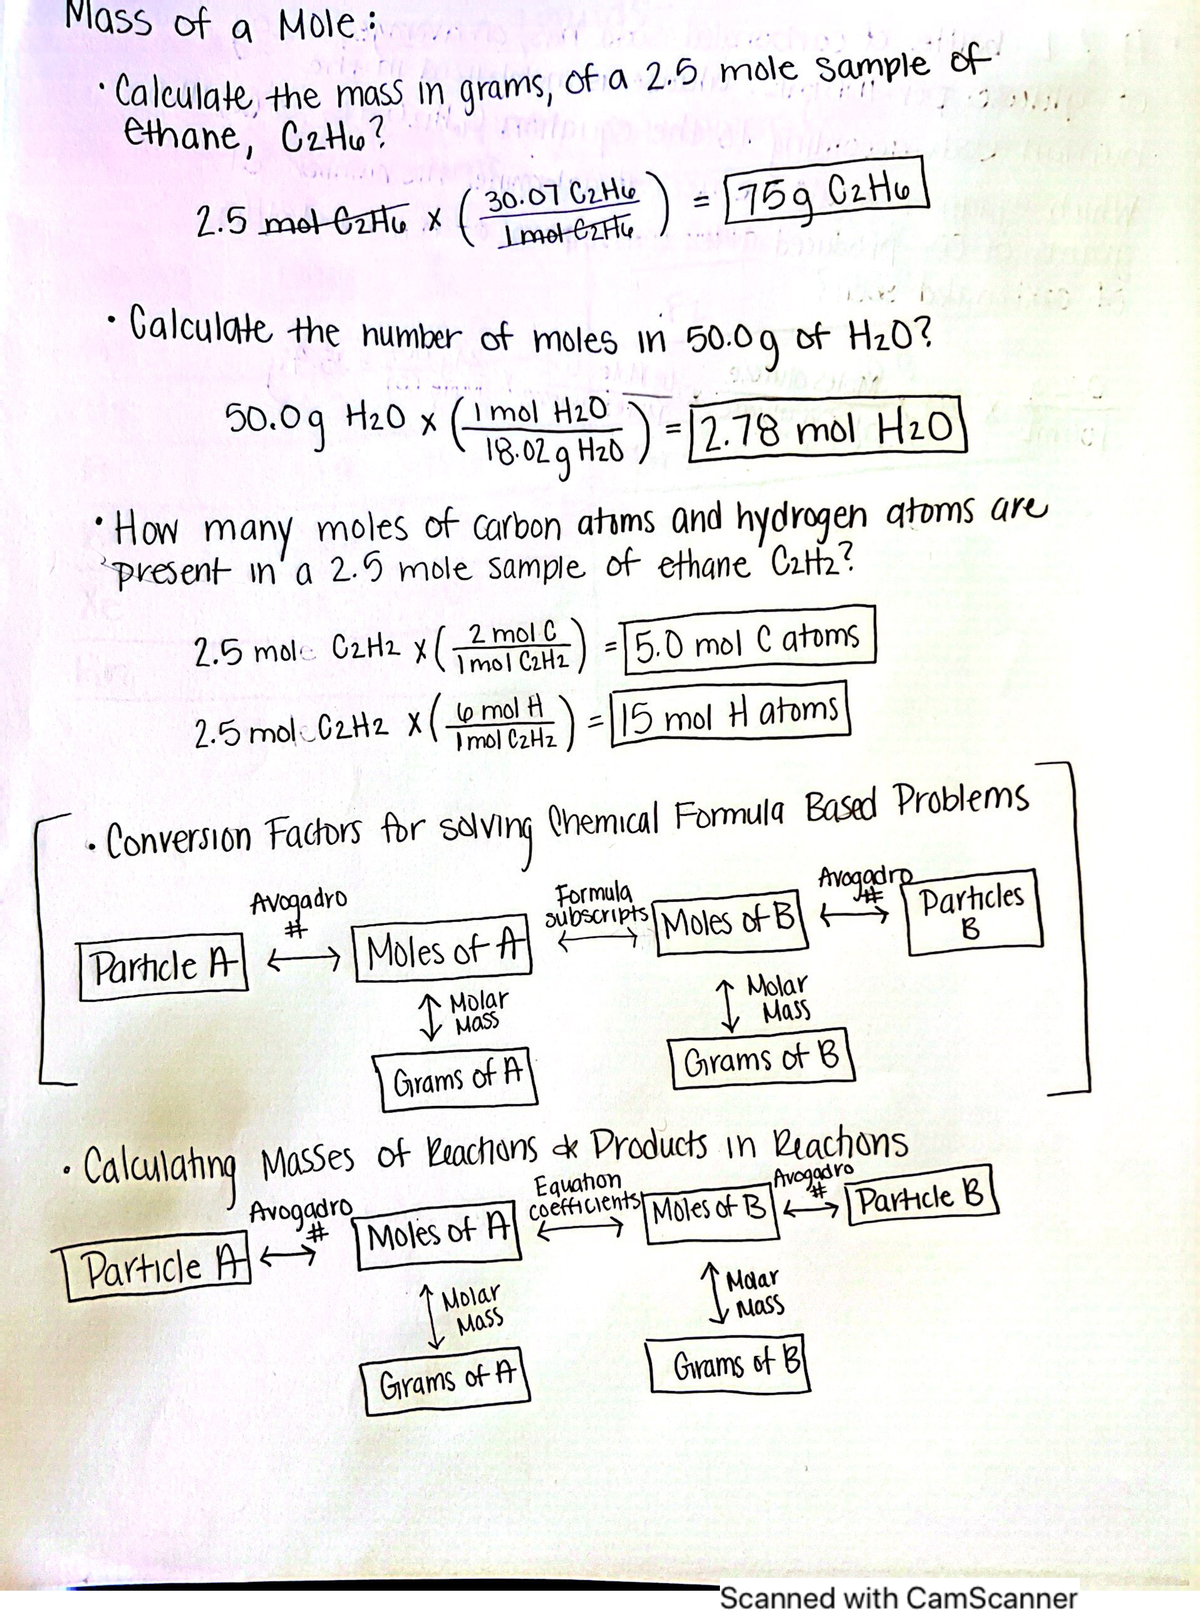 Mass of a Mole:
• Calculate, the mass in grams, of a 2.5 mole sample of
ethane, C2H6?
2.5 mol C2H6 x (30.07 C2H6 / 1 mol C2H6) = 75g C2H6
• Calculate the number of moles in 50.0g of H2O?
50.0g H2O x (1 mol H2O / 18.02g H2O) = 2.78 mol H2O
• How many moles of carbon atoms and hydrogen atoms are
present in a 2.5 mole sample of ethane C2H2?
2.5 mole C2H2 x (2 mol C / 1 mol C2H2) = 5.0 mol C atoms
2.5 mole C2H2 x (6 mol H / 1 mol C2H2) = 15 mol H atoms
• Conversion Factors for solving Chemical Formula Based Problems
Particle A
Avogadro
#
Moles of A
Formula
subscripts
Moles of B
Avogadro
#
Particles
B
Molar
Mass
Molar
Mass
Grams of A
Grams of B
• Calculating Masses of Reactions & Products in Reactions
Particle A
Avogadro
#
Moles of A
Equation
coefficients
Moles of B
Avogadro
#
Particle B
Molar
Mass
Molar
Mass
Grams of A
Grams of B
Scanned with CamScanner